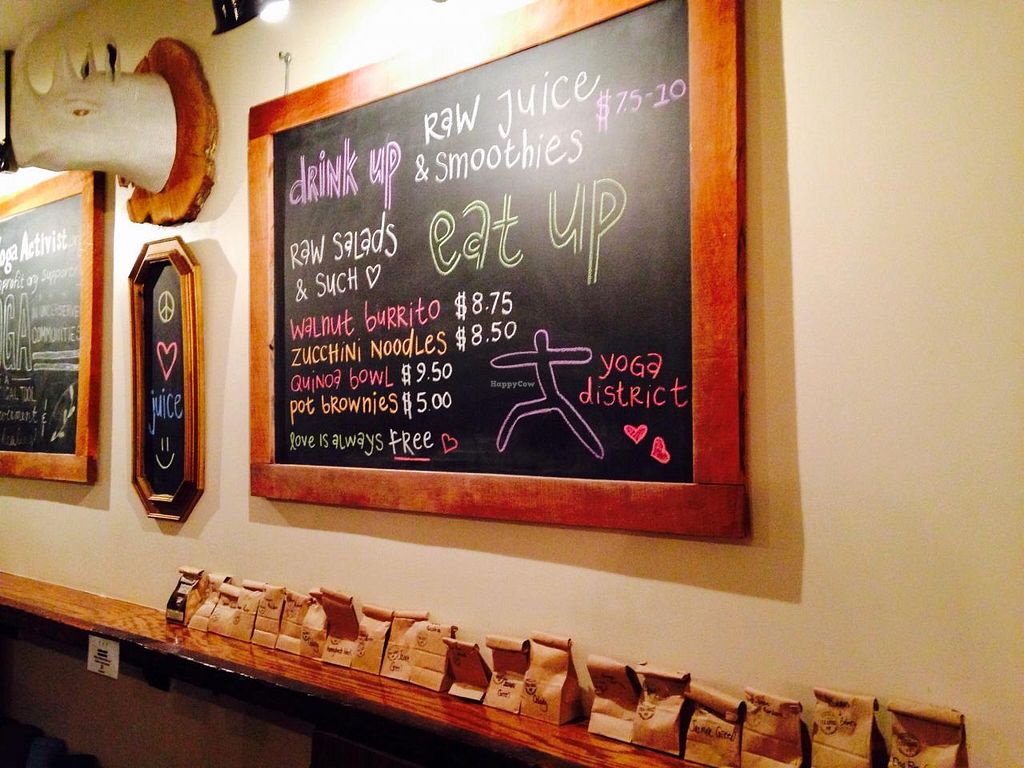 Yoga Activist
profit org supports
IN UNDERSERVED
COMMUNITIES
juice
drink up
Raw Juice
& Smoothies
$7.5-10
eat up
Raw Salads
& such
walnut burrito $8.75
zucchini noodles $8.50
Quinoa bowl $9.50
pot brownies $5.00
love is always FREE
yoga
district
HappyCow